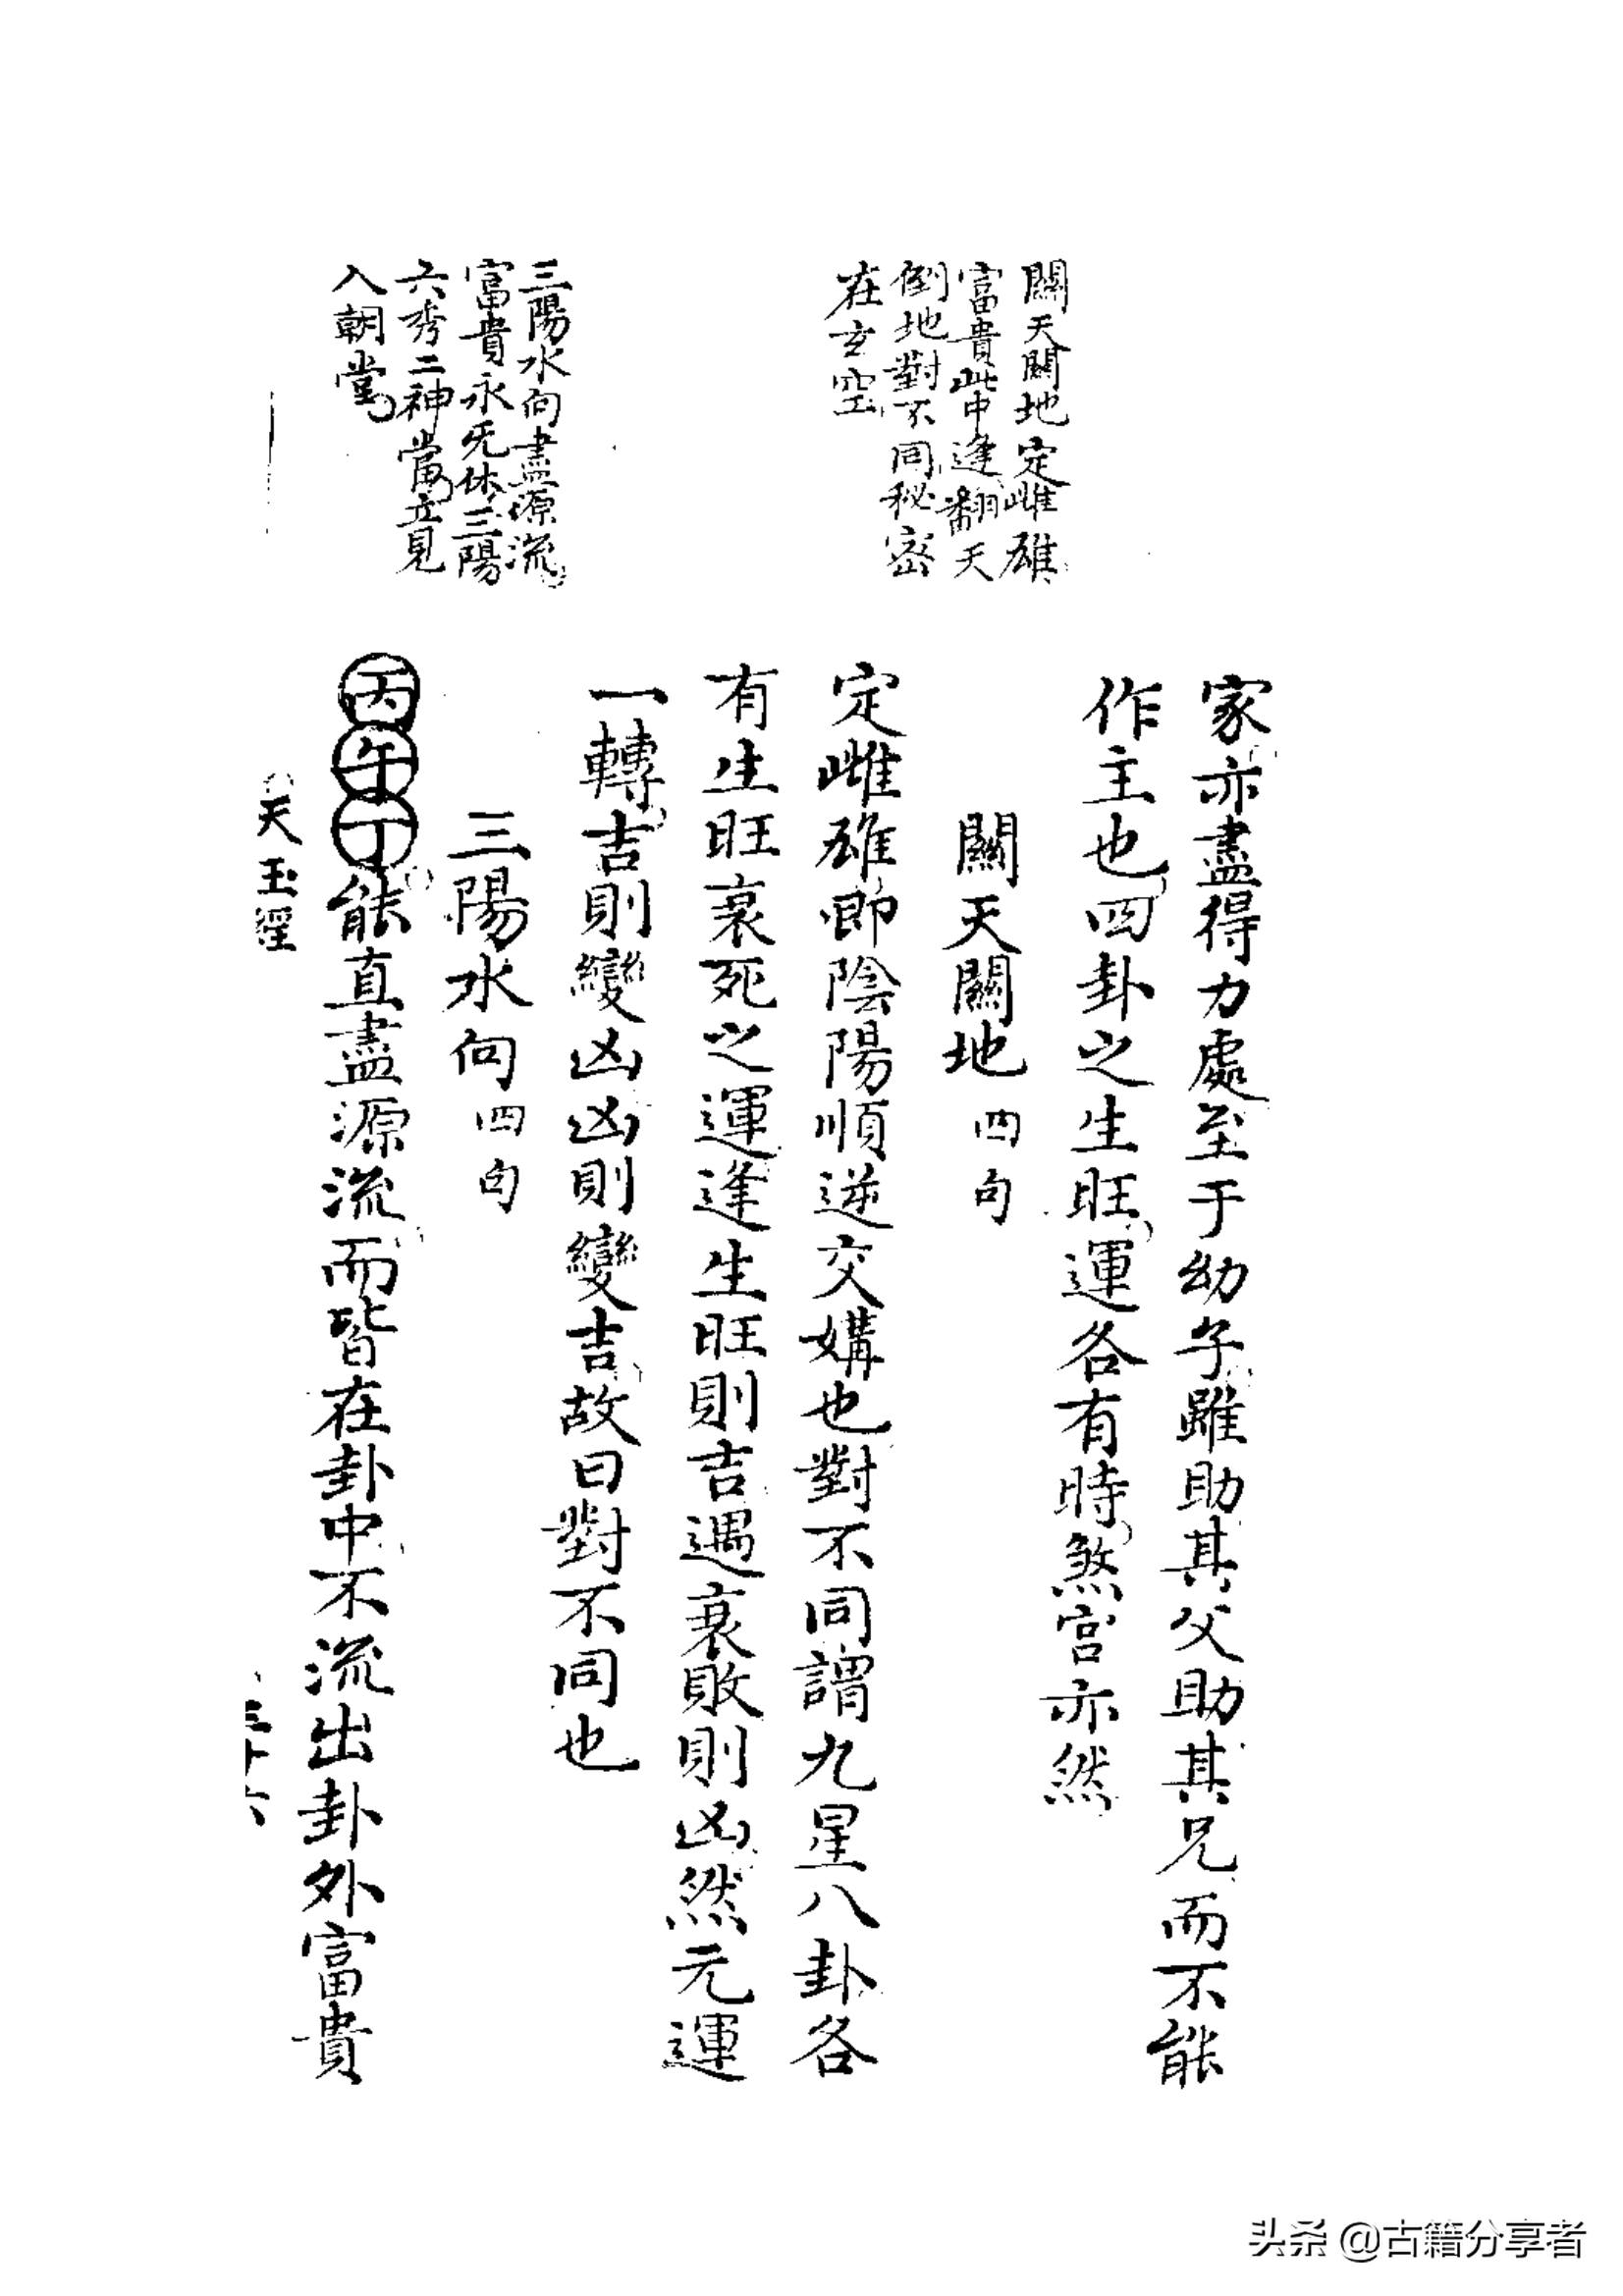 關天關地定雌雄
富貴此中逢翻天
倒地對不同秘密
在玄空
三陽水向盡源流
富貴永无休三陽
六秀二神當立見
入朝堂
家亦盡得力處至于幼子雖助其父助其兄而不能
作主也四卦之生旺運各有時煞宮亦然
關天關地四句
定雌雄即陰陽順逆交媾也對不同謂九星八卦各
有生旺衰死之運逢生旺則吉遇衰敗則凶然元運
一轉吉則變凶凶則變吉故曰對不同也
三陽水向四句
丙午丁能直盡源流而皆在卦中不流出卦外富貴
天玉經
三十六
头条 @古籍分享者